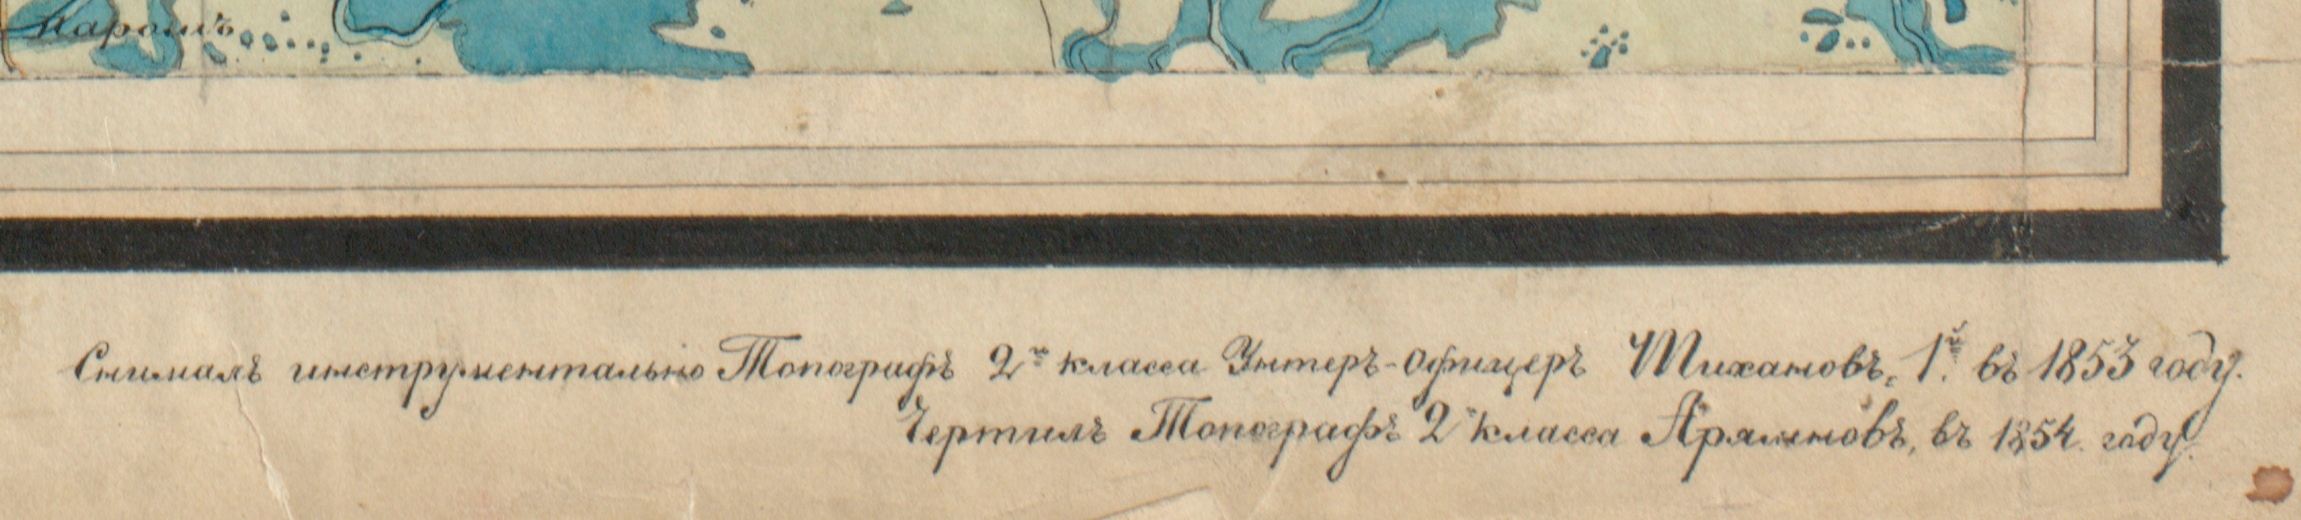 Паромъ
Снималъ инструментально Топографъ 2го класса Унтеръ-Офицеръ Тихановъ, 1й въ 1853 году.
Чертилъ Топографъ 2 класса въ 1854 году.